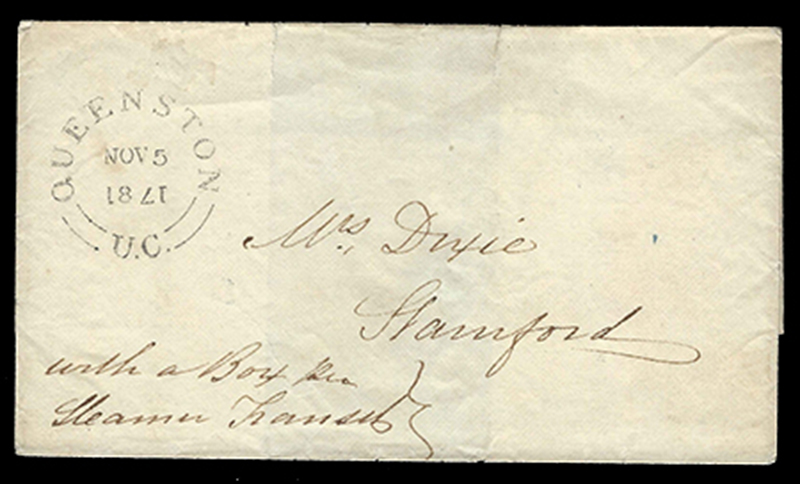 QUEENSTON
NOV 5
1871
U.C.
Mrs. Dixie
Stamford
with a Box Per
Steamer Transit